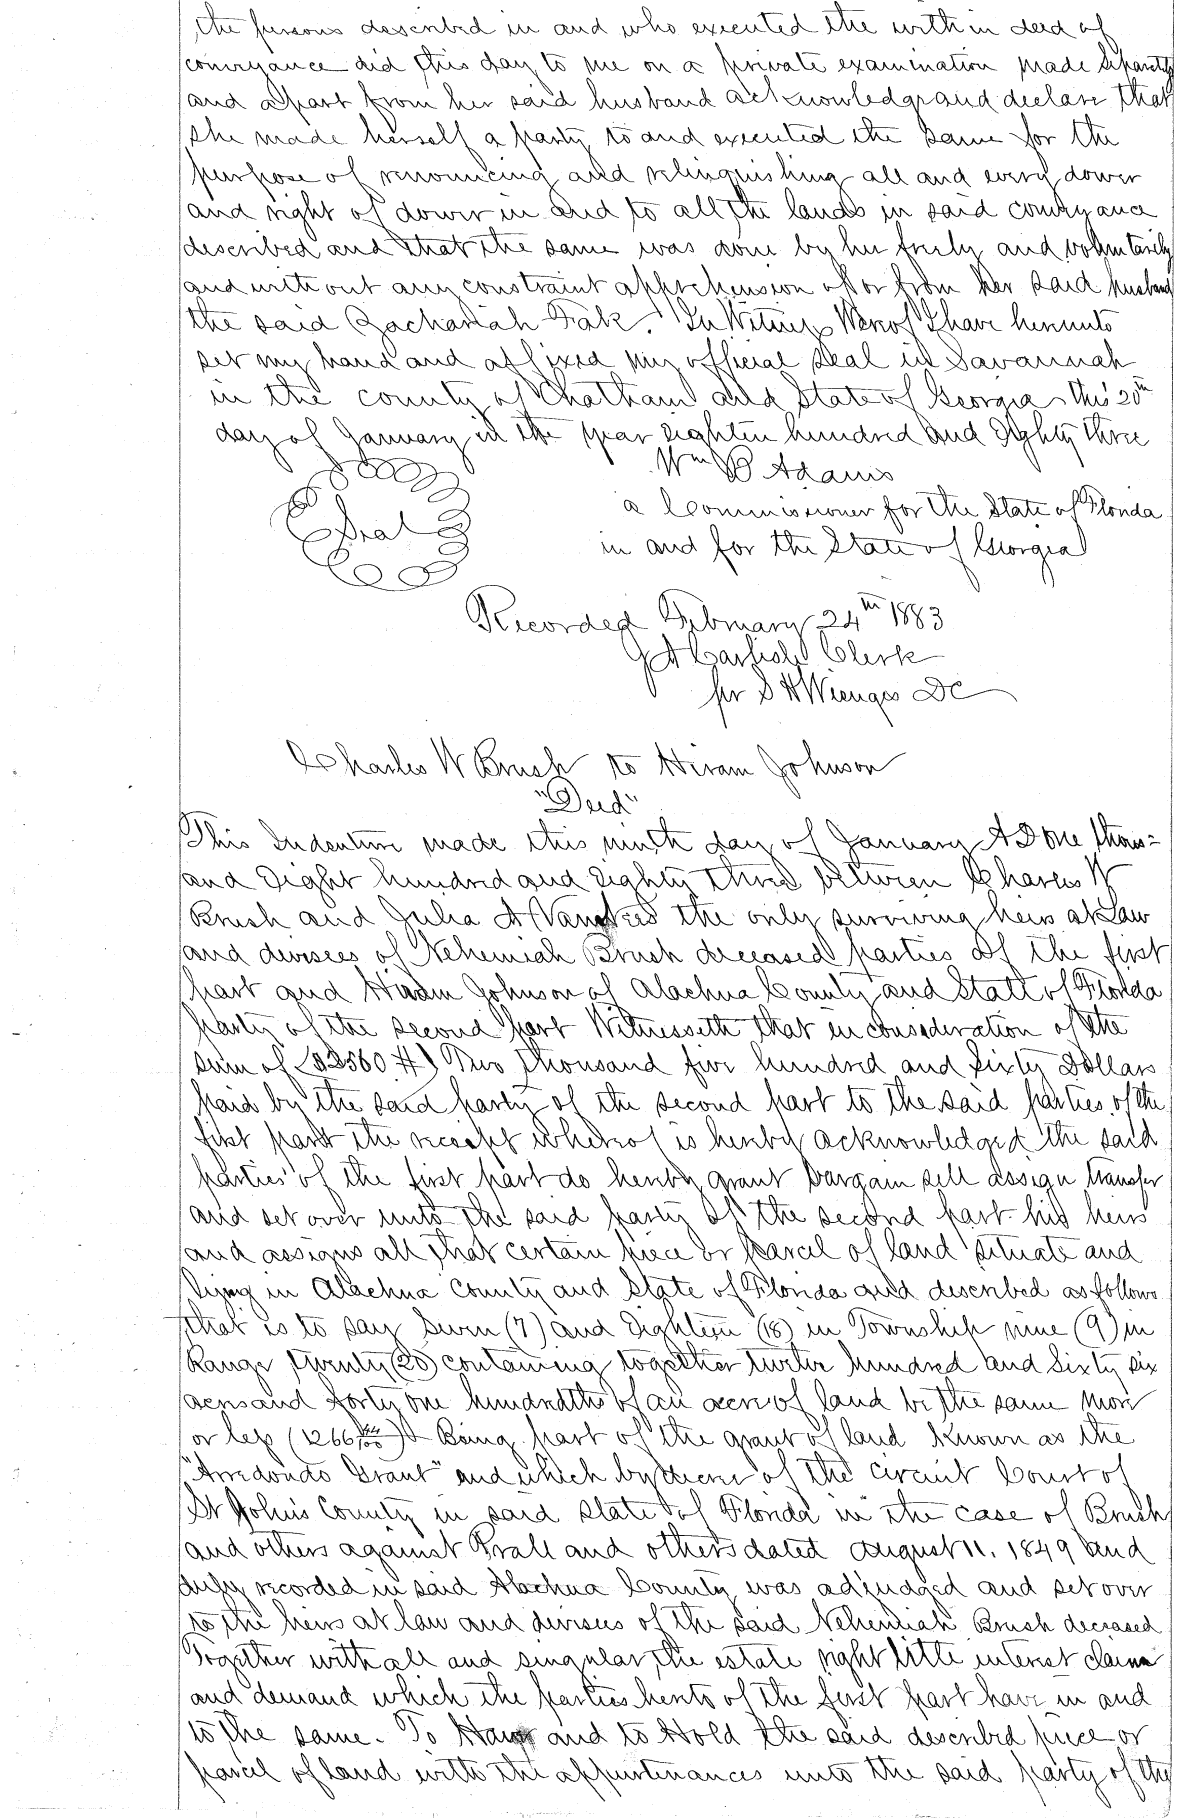 the persons described in and who executed the within deed of
conveyance did this day to me on a private examination made separetly
and apart from her said husband acknowledge and declare that
she made herself a party to and executed the same for the
purpose of renouncing and relinquishing all and every dower
and right of dower in and to all the lands in said conveyance
described and that the same was done by her freely and voluntarily
and without any constraint apprehension of or from her said husband
the said Zachariah Falk. In Witness Wereof I have hereunto
set my hand and affixed my official seal in Savannah
in the county of Chatham and State of Georgia this 20th
day of January in the year eighteen hundred and Eighty three
Wm B Adams
Seal
a Commissioner for the State of Florida
in and for the State of Georgia
Recorded February 24th 1883
J A Carlisle Clerk
per S H Wienges DC
Charles W Brush to Hiram Johnson
"Deed"
This Indenture made this ninth day of January AD One thous=
and Eight hundred and Eighty three between Charles W
Brush and Julia A the only surviving heirs at Law
and devisees of Nehemiah Brush deceased parties of the first
part and Hiram Johnson of Alachua County and State of Florida
party of the second part Witnesseth that in consideration of the
sum of ($2560 #) Two thousand five hundred and Sixty Dollars
paid by the said party of the second part to the said parties of the
first part the receipt whereof is hereby acknowledged the said
parties of the first part do hereby grant bargain sell assign transfer
and set over unto the said party of the second part his heirs
and assigns all that certain piece or parcel of land situate and
lying in Alachua County and State of Florida and described as follows
that is to say Seven (7) and Eighteen (18) in Township nine (9) in
Range twenty (20) containing together twelve hundred and Sixty six
acres and forty one hundredths of an acre of land be the same more
or less (1266 41/100) Being part of the grant of land known as the
"Arredondo Grant" and which by decree of the circuit Court of
St Johns County in said State of Florida in the case of Brush
and others against Prall and others dated August 11. 1849 and
duly recorded in said Alachua County was adjudged and set over
to the heirs at law and devisees of the said Nehemiah Brush deceased
Together with all and singular, the estate right title interest claim
and demand which the parties hereto of the first part have in and
to the same. To Have and to Hold the said described piece or
parcel of land with the appurtenances unto the said party of the